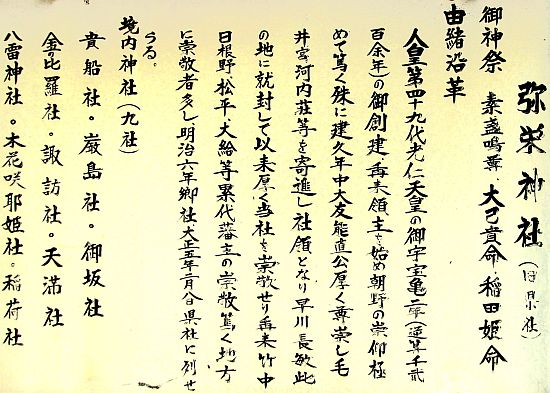 弥栄神社（旧県社）
御神祭　素盞嗚尊・大己貴命・稲田姫命
由緒沿革
人皇第四十九代光仁天皇の御宇宝亀二年（逆算千弐
百余年）の御創建・再来領主を始め朝野の崇仰極
めて篤く殊に建久年中大友能直公厚く尊崇し毛
井宮河内荘等を寄進し社領となり早川長敏此
の地に就封して以来厚く当社を崇敬せり再来竹中
日根野、松平、大給等累代藩主の崇敬篤く地方
に崇敬者多し、明治六年郷社大正五年二月八日県社に列せ
らる。
境内神社（九社）
貴船社・厳島社・御坂社
金比羅社・諏訪社・天満社
八雷神社・木花咲耶姫社・稲荷社